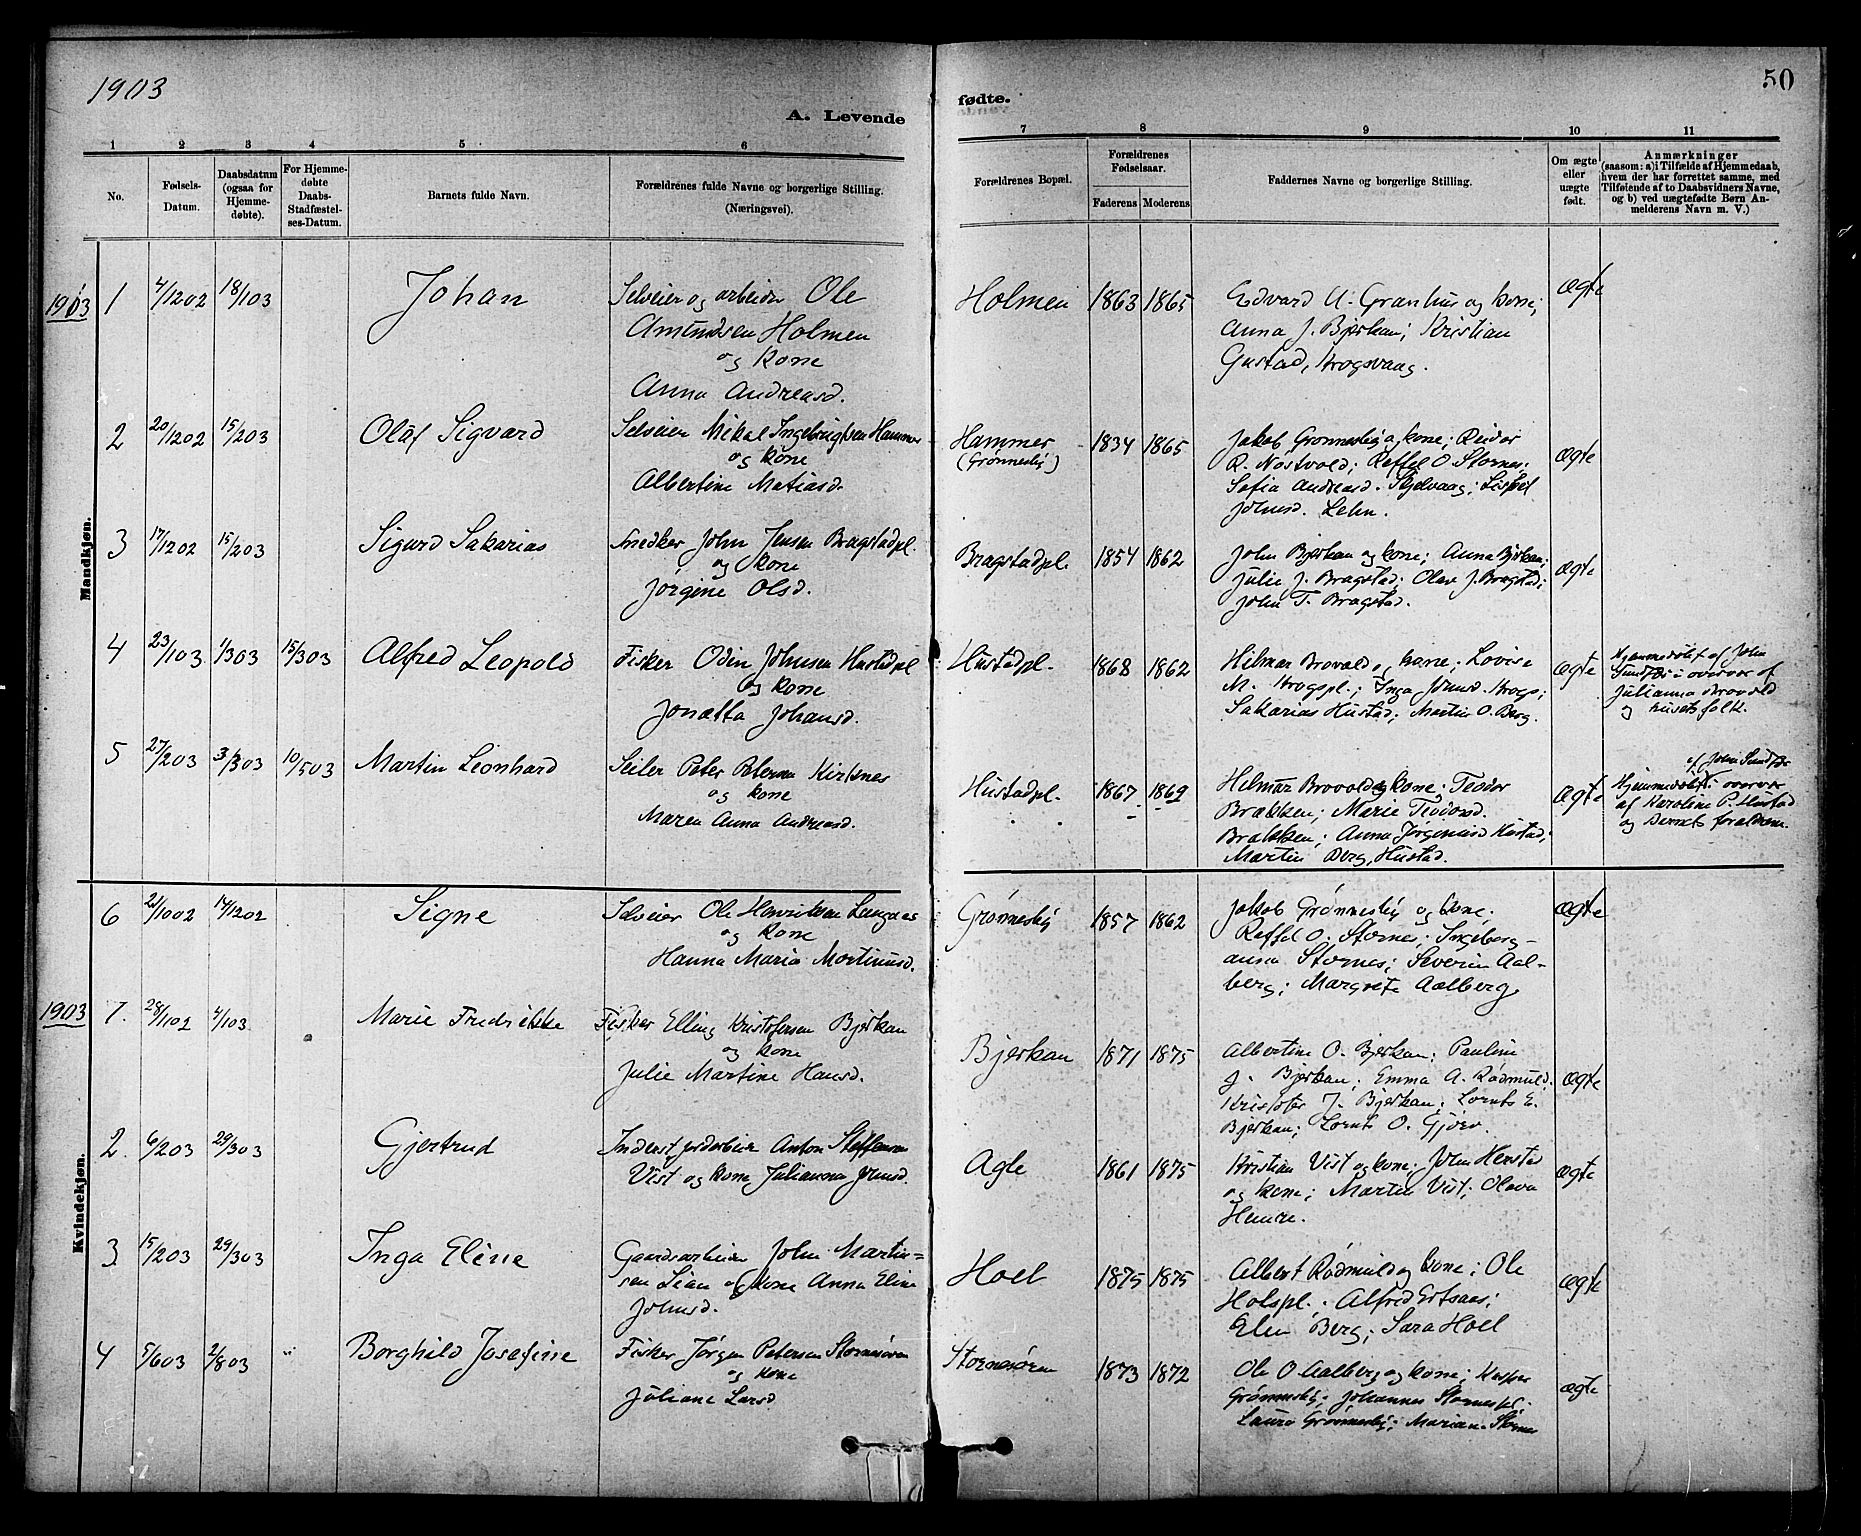 1903
50
A. Levende
fødte.
1 2 3 4 5 6
7 8 9 10 11
No.
Fødsels-
Datum.
Daabsdatum
(ogsaa for
Hjemme-
døbte).
For Hjemme-
døbte
Daabs-
Stadfæstel-
ses-Datum.
Barnets fulde Navn.
Forældrenes fulde Navne og borgerlige Stilling.
(Næringsvei).
Forældrenes Bopæl.
Forældrenes
Fødselsaar.
Faderens Moderens
Faddernes Navne og borgerlige Stilling.
Om ægte
eller
uægte
født.
Anmærkninger
(saasom: a) i Tilfælde af Hjemmedaab,
hvem der har forrettet samme, med
Tilføiende af to Daabsvidners Navne,
og b) ved uægtefødte Børn An-
melderens Navn m. V.)
Mandkjøn.
1903 1 4/1202 18/103 Johan Selveier og arbeider Ole
Amundsen Holmen
og kone
Anna Andreasd.
Holmen 1863 1865 Edvard A. Granhus og kone; ægte
Anna J. Bjerkan; Kristian
Gustad, Krogsvaag.
2 20/1202 15/203 Olaf Sigvard Selveier Mikal Ingebrigtsen Hammer
og kone
Albertine Matiasd.
Hammer 1834 1865 Jakob Grønnesby og kone; Reidar ægte
(Grønnesby) R. Nøstvold; Raffel O. Stornes;
Sofia Andreasd. Skjelvaag;
Johnsd. Lehn.
3 17/1202 15/203 Sigurd Sakarias Snedker John Jensen Bragstadpl.
og kone
Jørgine Olsd.
Bragstadpl. 1854 1862 John Bjerkan og kone; Anna Bjerkan; ægte
Julie J. Bragstad; Olav J. Bragstad;
John T. Bragstad.
4 23/103 1/303 15/303 Alfred Leopold Fisker Odin Johnsen Hustadpl
og kone
Jonetta Johansd.
Hustadpl. 1868 1862 Hilmar Brovold og kone; Lovise ægte
M. Krogspl.; Inga Johnsd. Krogs;
Sakarias Hustad; Martin O. Berg.
Hjemmedøbt af John
Sundfær i overvær af
Julianna Brovold
og husets folk.
5 27/203 3/303 10/503 Martin Leonhard Seiler Peter Petersen Kirknes
og kone
Maren Anna Andreasd.
Hustadpl. 1867 1869 Helmar Brovold og kone; Teodor ægte
Brækken; Marie Teodorsd.
Brækken; Anna Jørgensd Hustad;
Martin Berg, Hustad.
af John Sundfær
Hjemmedøbt i overvær
af Karoline P. Hustad
og barnets forældre.
Kvindekjøn.
6 21/1002 14/1202 Signe Selveier Ole Henriksen Langaas
og kone
Hanna Maria Martinusd.
Grønnesby 1857 1862 Jakob Grønnesby og kone; ægte
Raffel O. Stornes; Ingeborg-
anna Stornes; Severin Aal-
berg; Margrete Aalberg.
1903 1. 28/1102 4/103 Marie Fredrikke Fisker Elling Kristofersen Bjerkan
og kone
Julie Martine Hansd.
Bjerkan 1871 1875 Albertine O. Bjerkan; Pauline ægte
J. Bjerkan; Emma A. Rødmuld;
Kristofer J. Bjerkan; Lornts E.
Bjerkan; Lornts O. Gjørv.
2. 6/203 29/303 Gjertrud Inderst, jordarbeider Anton Steffensen
Vist og kone Julianna Johnsd.
Agle 1861 1875 Kristian Vist og kone; John Henstad ægte
og kone; Martin Vist; Olava
Hemre.
3 15/203 29/303 Inga Eline Gaardsarbeider John Martin=
sen Lian og kone Anna Eline
Johnsd.
Hoel 1875 1875 Albert Rødmuld og kone; Ole ægte
Holspl.; Alfred Ertsaas;
Elen Berg; Sara Hoel
4 5/603 2/803 " Borghild Josefine Fisker Jørgen Petersen Stornesøren
og kone
Juliane Larsd
Stornesøren 1873 1872 Ole O Aalberg og kone; Kasper ægte
Grønnesby; Johannes Stornespl.
Laura Grønnesby; Marian Stornes